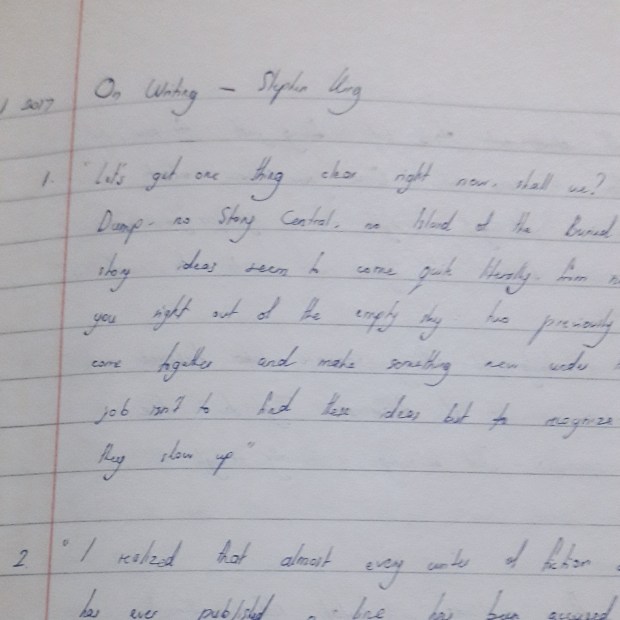 2017 On Writing - Stephen King
1. "Let's get one thing clear right now, shall we?
Dump. no Story Central. no Island of the Buried
story ideas seem to come quite literally from
you right out of the empty sky two previously
come together and make something new under
job isn't to find these ideas but to recognize
they show up"
2 "I realized that almost every writer of fiction
has ever published a line has been accused